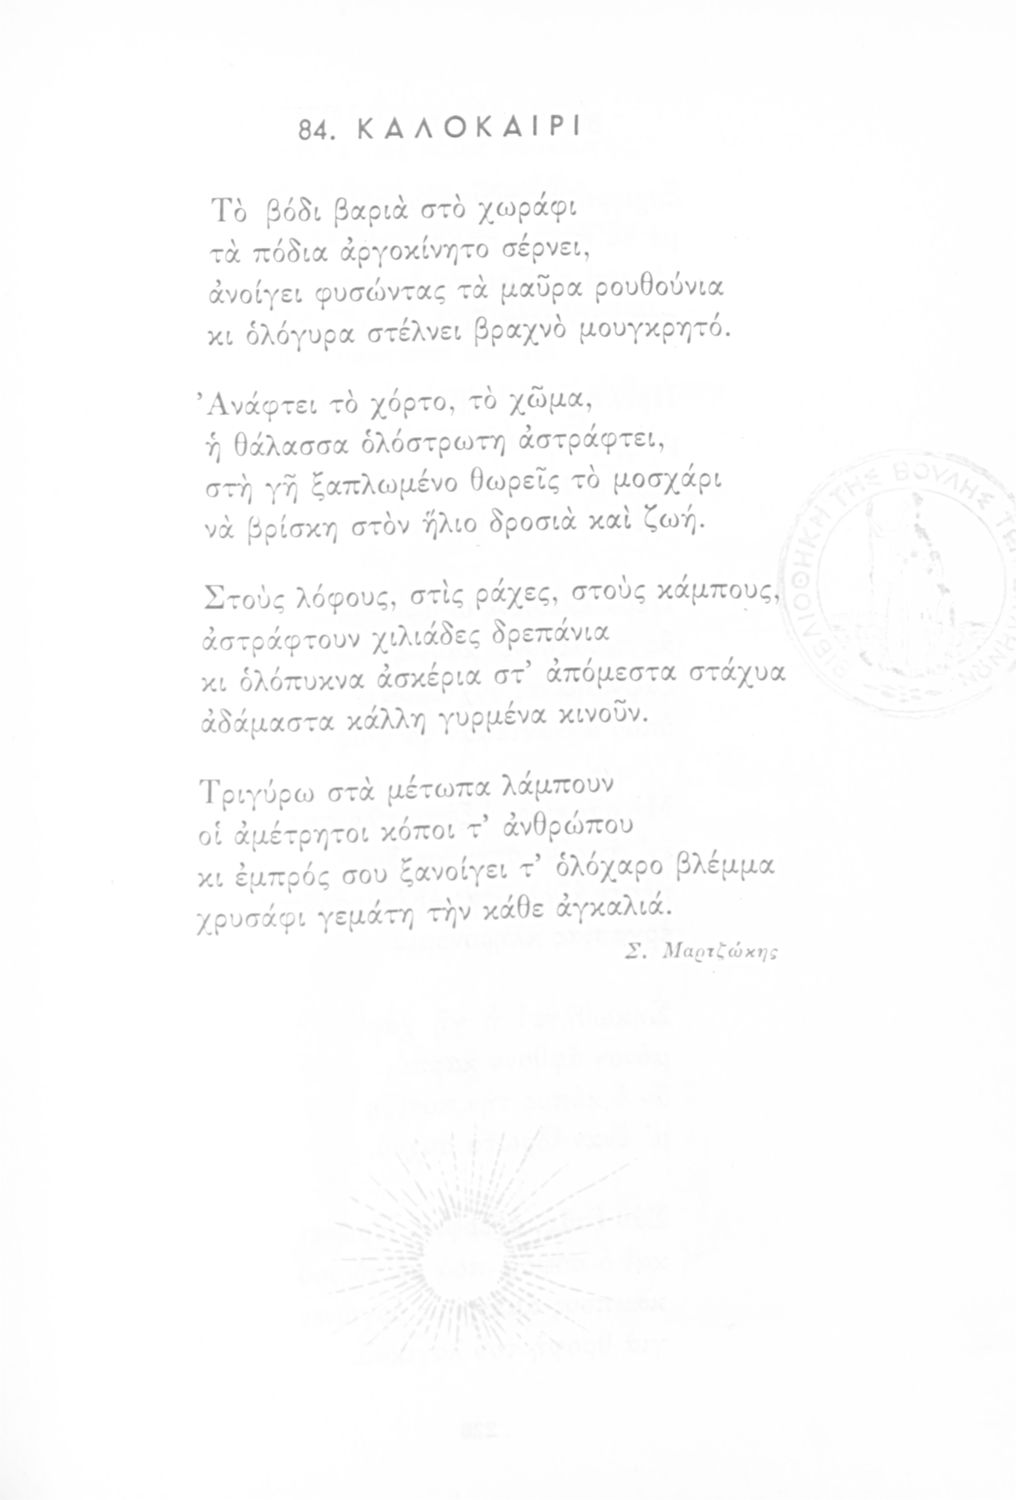 84. ΚΑΛΟΚΑΙΡΙ
Τὸ βόδι βαριὰ στὸ χωράφι
τὰ πόδια ἀργοκίνητο σέρνει,
ἀνοίγει φυσώντας τὰ μαῦρα ρουθούνια
κι ὁλόγυρα στέλνει βραχνὸ μουγκρητό.
Ἀνάφτει τὸ χόρτο, τὸ χῶμα,
ἡ θάλασσα ὁλόστρωτη ἀστράφτει,
στὴ γῆ ξαπλωμένο θωρεῖς τὸ μοσχάρι
νὰ βρίσκη στὸν ἥλιο δροσιὰ καὶ ζωή.
Στοὺς λόφους, στὶς ράχες, στοὺς κάμπους,
ἀστράφτουν χιλιάδες δρεπάνια
κι ὁλόπυκνα ἀσκέρια στ’ ἀπόμεστα στάχυα
ἀδάμαστα κάλλη γυρμένα κινοῦν.
Τριγύρω στὰ μέτωπα λάμπουν
οἱ ἀμέτρητοι κόποι τ’ ἀνθρώπου
κι ἐμπρός σου ξανοίγει τ’ ὁλόχαρο βλέμμα
χρυσάφι γεμάτη τὴν κάθε ἀγκαλιά.
Σ. Μαρτζώκης
ΒΙΒΛΙΟΘΗΚΗ ΤΗΣ ΒΟΥΛΗΣ